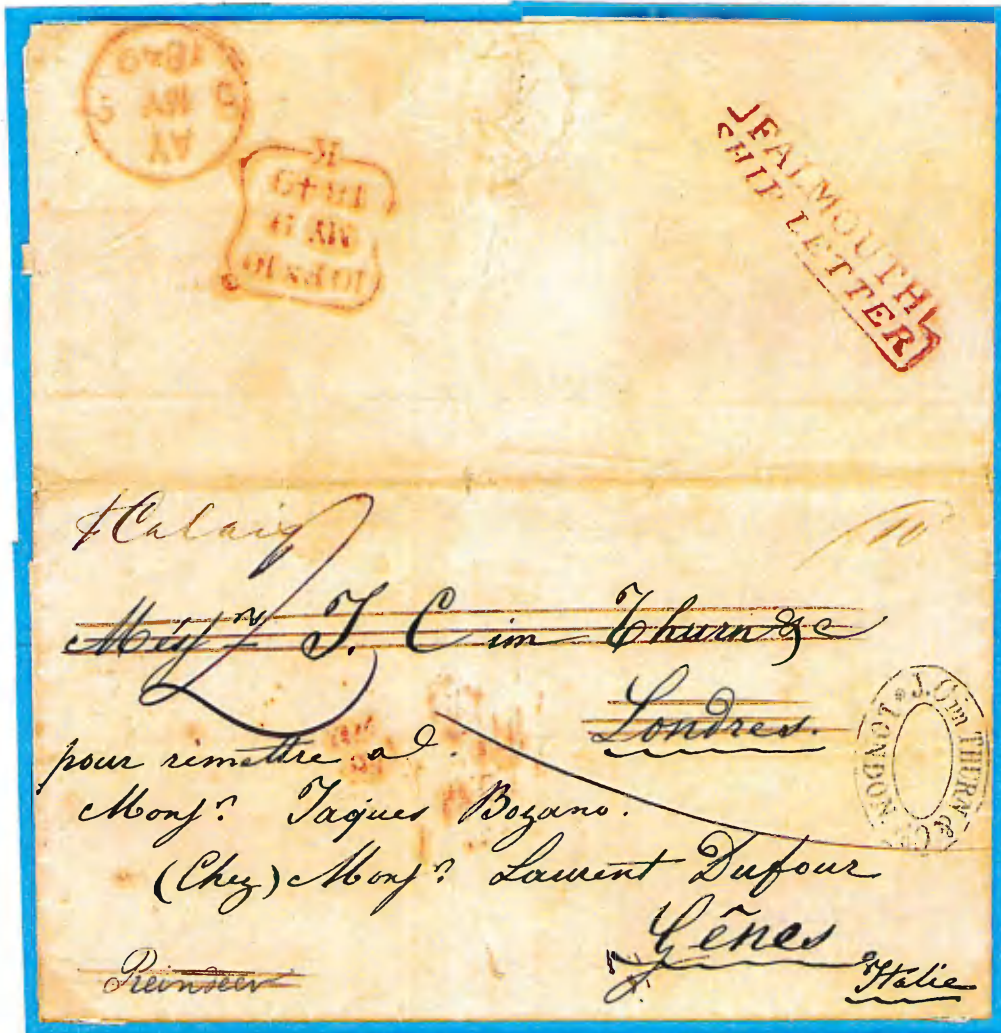 1849
MY
C
AY
K
1849
MY
FALMOUTH
SHIP LETTER
Calais
Messrs J. C im Thurn & C
Londres.
J. C im THURN & Co
LONDON
pour remettre a
Monsr. Jaques Bozano.
(Chez) Monsr. Laurent Dufour
Gênes
Italie
Reindeer